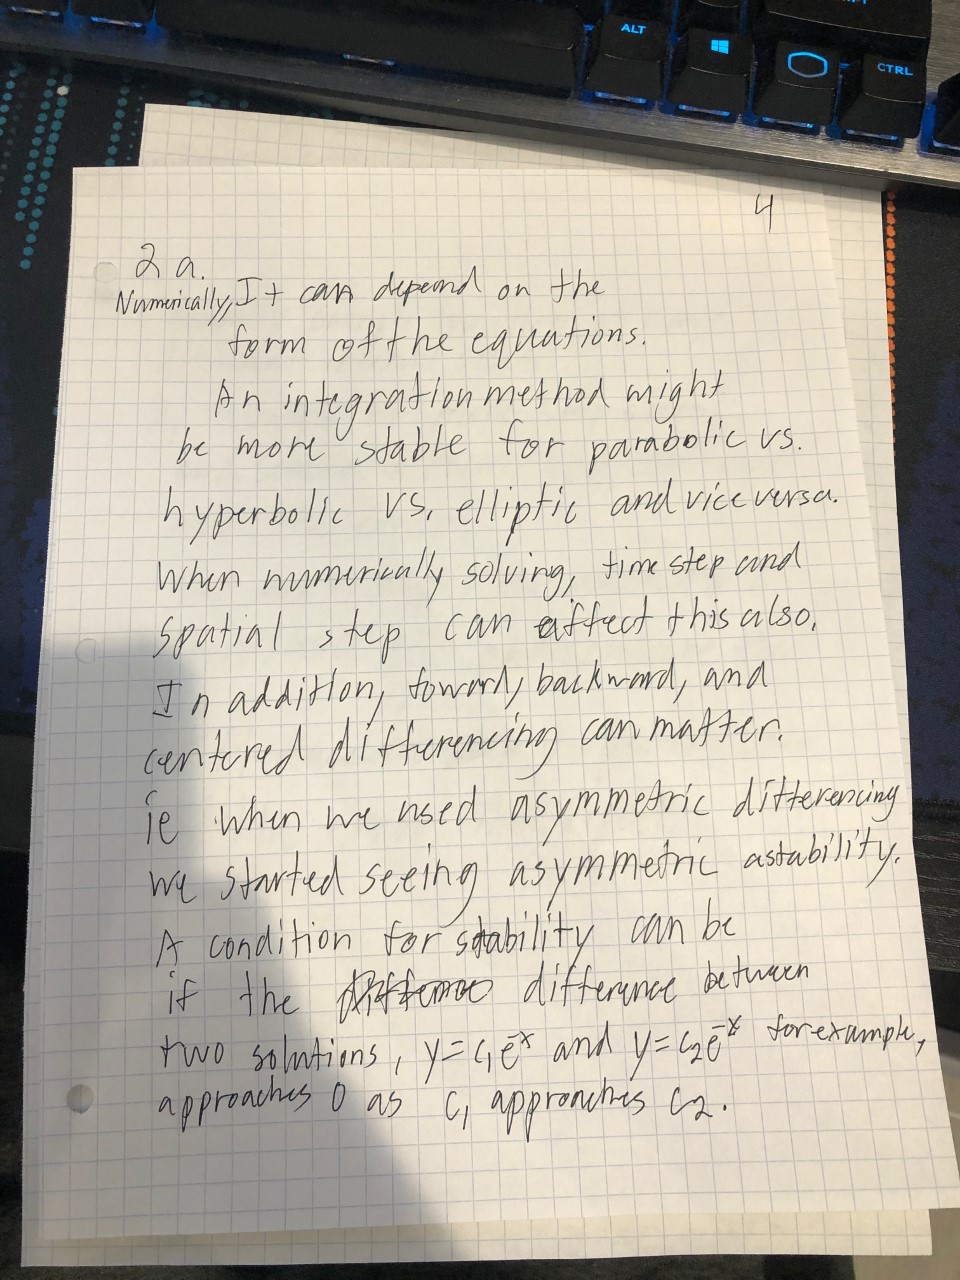 ALT
CTRL
4
2 a.
Numerically, It can depend on the
form of the equations.
An integration method might
be more stable for parabolic vs.
hyperbolic vs. elliptic and vice versa.
When numerically solving, time step and
spatial step can affect this also.
In addition, foward, backward, and
centered differencing can matter.
ie when we used asymmetric differencing
we started seeing asymmetric astability.
A condition for stability can be
if the difference between
two solutions, y=c₁e⁻ˣ and y=c₂e⁻ˣ for example,
approaches 0 as c₁ approaches c₂.